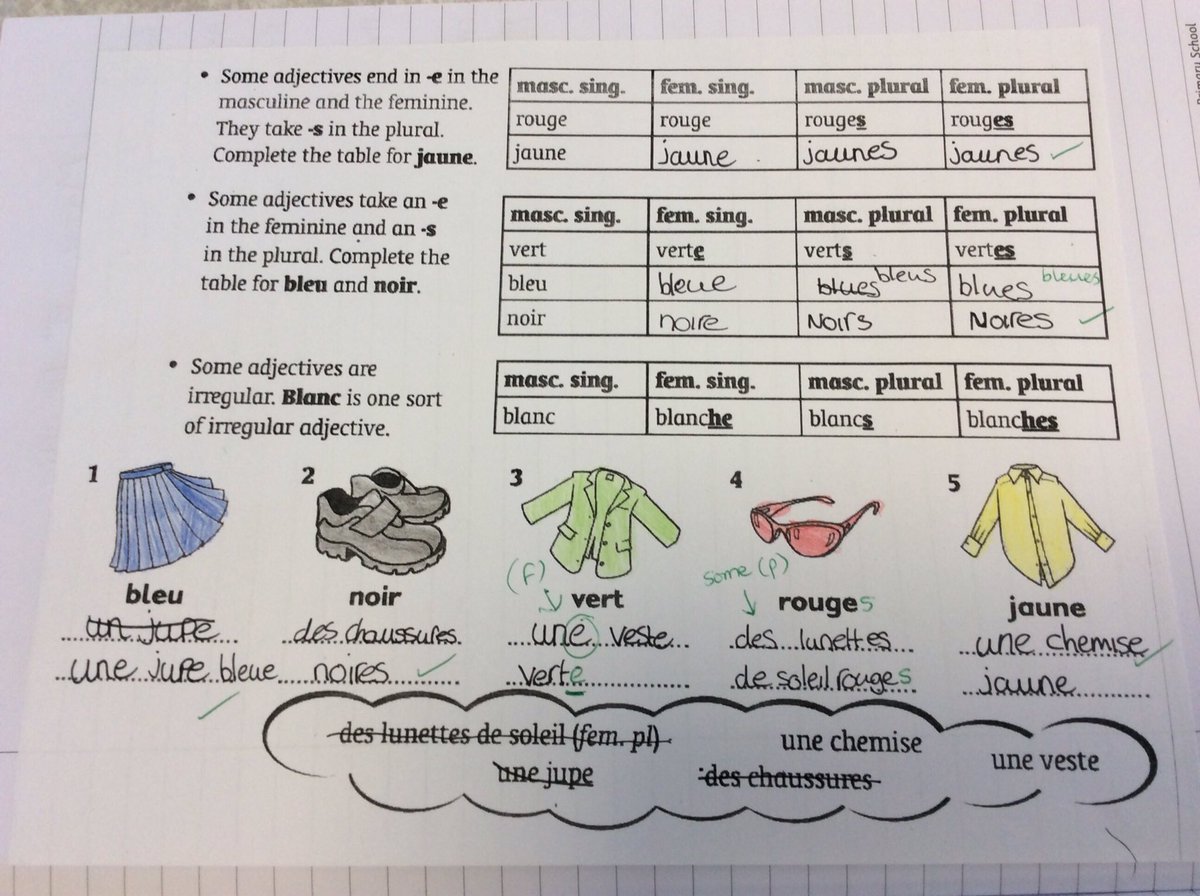 rimary School
• Some adjectives end in -e in the
masculine and the feminine.
They take -s in the plural.
Complete the table for jaune.
masc. sing. fem. sing. masc. plural fem. plural
rouge rouge rouges rouges
jaune jaune jaunes jaunes
• Some adjectives take an -e
in the feminine and an -s
in the plural. Complete the
table for bleu and noir.
masc. sing. fem. sing. masc. plural fem. plural
vert verte verts vertes
bleu bleue blues bleus blues bleues
noir noire Noirs Noires
• Some adjectives are
irregular. Blanc is one sort
of irregular adjective.
masc. sing. fem. sing. masc. plural fem. plural
blanc blanche blancs blanches
1 2 3 4 5
(F) some (p)
bleu noir vert rouges jaune
un jupe des chaussures. une veste des lunettes une chemise
une jupe bleue noires verte de soleil rouges jaune
des lunettes de soleil (fem. pl) une chemise une veste
une jupe des chaussures